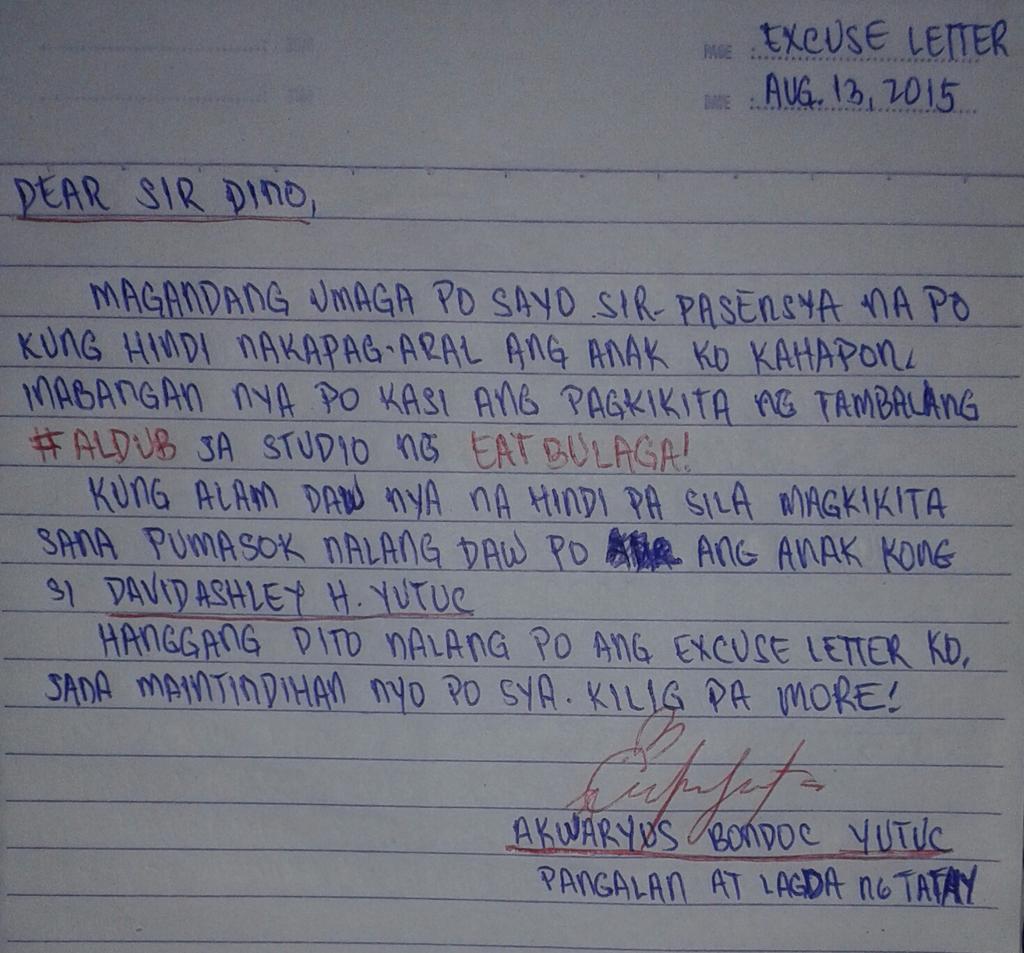 PAGE : EXCUSE LETTER
DATE : AUG. 13, 2015
DEAR SIR DINO,
MAGANDANG UMAGA PO SAYO SIR. PASENSYA NA PO
KUNG HINDI NAKAPAG-ARAL ANG ANAK KO KAHAPON.
INABANGAN NYA PO KASI ANG PAGKIKITA NG TAMBALANG
#ALDUB SA STUDIO NG EAT BULAGA!
KUNG ALAM DAW NYA NA HINDI PA SILA MAGKIKITA
SANA PUMASOK NALANG DAW PO ANG ANAK KONG
SI DAVID ASHLEY H. YUTUC
HANGGANG DITO NALANG PO ANG EXCUSE LETTER KO.
SANA MAINTINDIHAN NYO PO SYA. KILIG PA MORE!
AKWARYUS BONDOC YUTUC
PANGALAN AT LAGDA NG TATAY